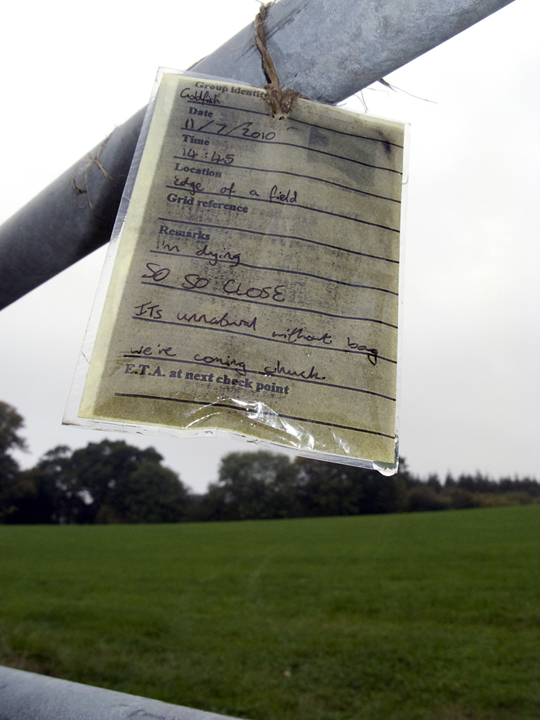 Group identity
Goldfish
Date
11/7/2010
Time
14:45
Location
Edge of a field
Grid reference
Remarks
I'm dying
SO SO CLOSE
ITs unnatural without bag
we're coming chuck.
E.T.A. at next check point